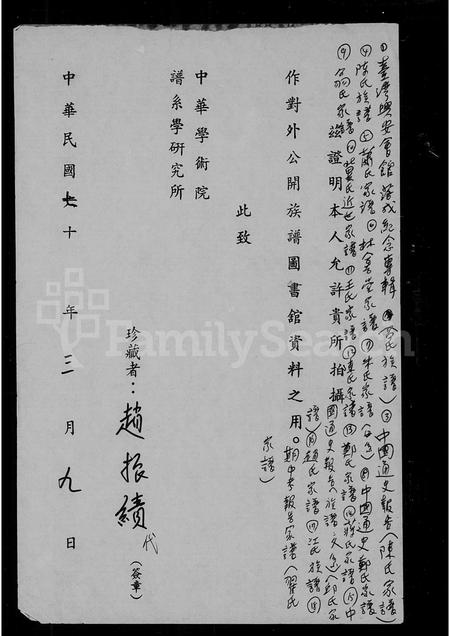 ①臺灣興安會館落成紀念專輯 ②呂氏族譜 ③中國通史報告(陳氏家譜)
④陳氏族譜 ⑤蕭氏家譜 ⑥林 堂家譜 ⑦朱氏家譜 ⑧中國通史鄭氏家譜
⑨翁氏家譜 ⑩黃氏近世家譜 ⑪王氏家譜 ⑫ 氏家譜 ⑬鄭氏家譜 ⑭蔣氏家譜 ⑮中
國通史報告(族譜 )邱氏家
譜) 趙氏家譜 江氏族譜
期中考報告家譜(翟氏
家譜)
茲證明本人允許貴所拍攝
作對外公開族譜圖書館資料之用。
此致
中華學術院
譜系學研究所
珍藏者:趙振績代
(簽章)
中華民國七十年三月九日
FamilySearch